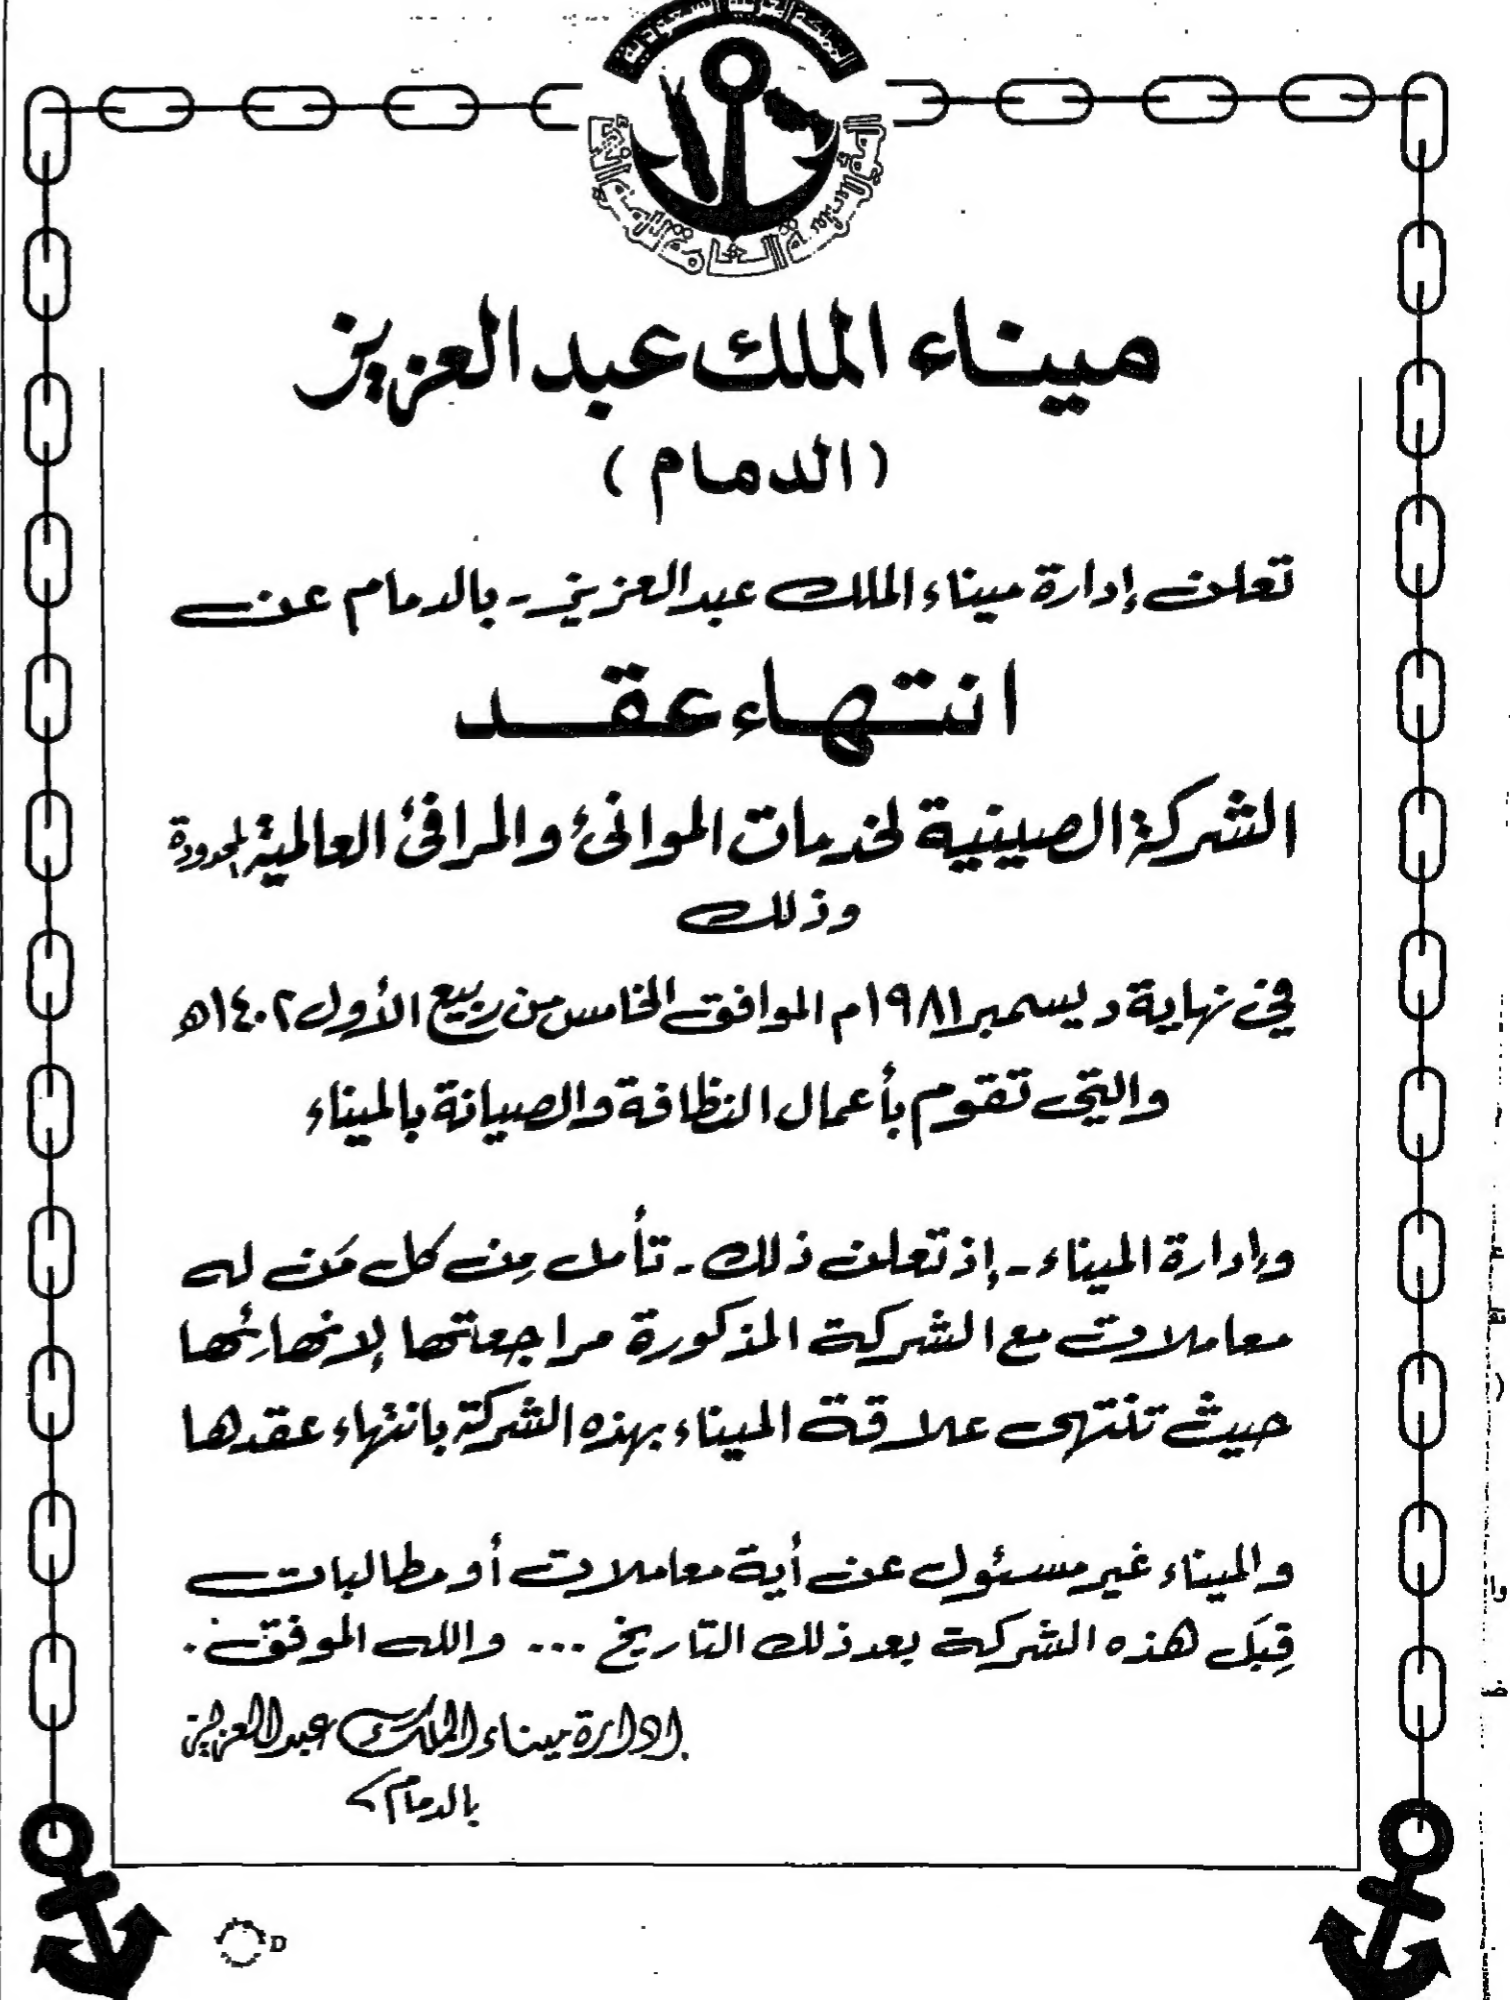 المملكة العربية السعودية
المؤسسة العامة للموانئ
ميناء الملك عبد العزيز
(الدمام)
تعلن إدارة ميناء الملك عبد العزيز - بالدمام عن
انتهاء عقد
الشركة الصينية لخدمات الموانئ والمرافئ العالمية المحدودة
وذلك
في نهاية ديسمبر ١٩٨١م الموافق الخامس من ربيع الأول ١٤٠٢هـ
والتي تقوم بأعمال النظافة والصيانة بالميناء
وإدارة الميناء - إذ تعلن ذلك - تأمل مِن كل مَن له
معاملات مع الشركة المذكورة مراجعتها لإنهائها
حيث تنتهى علاقة الميناء بهذه الشركة بانتهاء عقدها
والميناء غير مسئول عن أية معاملات أو مطالبات
قِبَل هذه الشركة بعد ذلك التاريخ ... والله الموفق.
إدارة ميناء الملك عبد العزيز
بالدمام
D